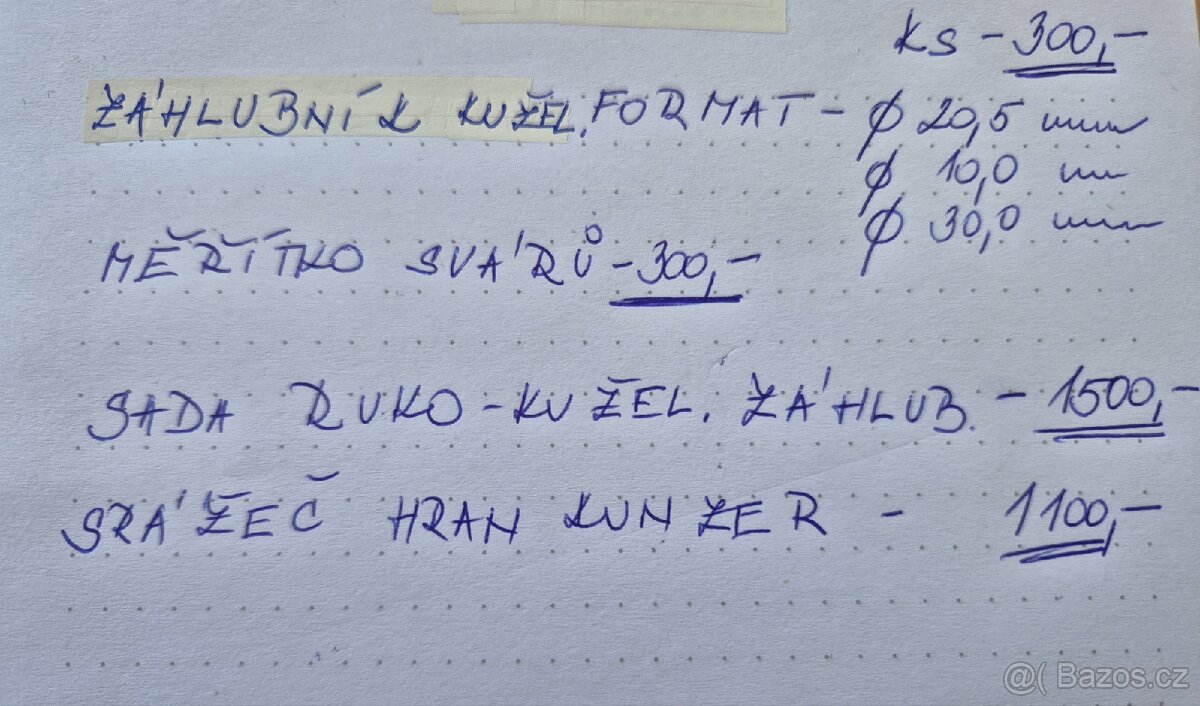 KS - 300,-
ZÁHLUBNÍK KUŽEL. FORMAT - ϕ 20,5 mm
ϕ 10,0 mm
ϕ 30,0 mm
MĚŘÍTKO SVÁRŮ - 300,-
SADA RUKO - KUŽEL. ZÁHLUB. - 1500,-
SRÁŽEČ HRAN KUNZER - 1100,-
@( Bazos.cz